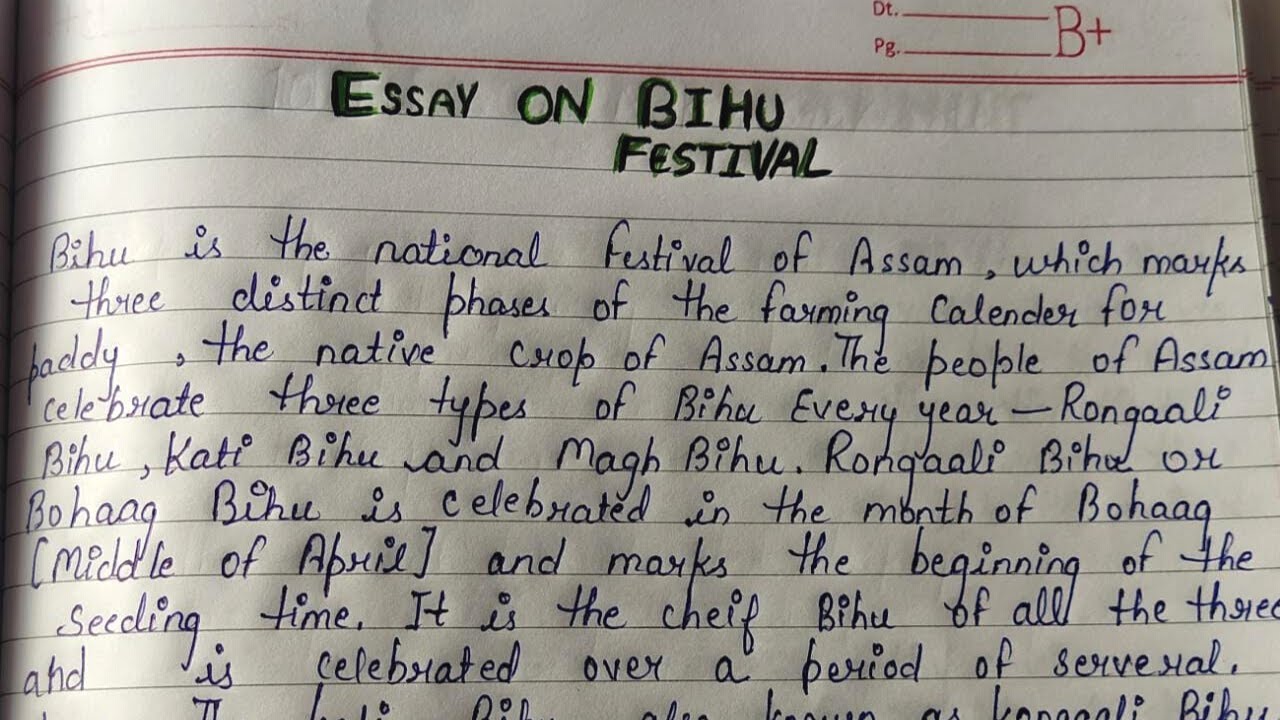 Dt.
Pg.
B+
ESSAY ON BIHU
FESTIVAL
Bihu is the national festival of Assam, which marks
three distinct phases of the farming Calender for
paddy, the native crop of Assam. The people of Assam
celebrate three types of Bihu Every year – Rongaali
Bihu, Kati Bihu and Magh Bihu. Rongaali Bihu or
Bohaag Bihu is celebrated in the month of Bohaag
[Middle of April] and marks the beginning of the
seeding time. It is the cheif Bihu of all the three
and is celebrated over a period of serveral.
Bihu also known as kongaali Bihu